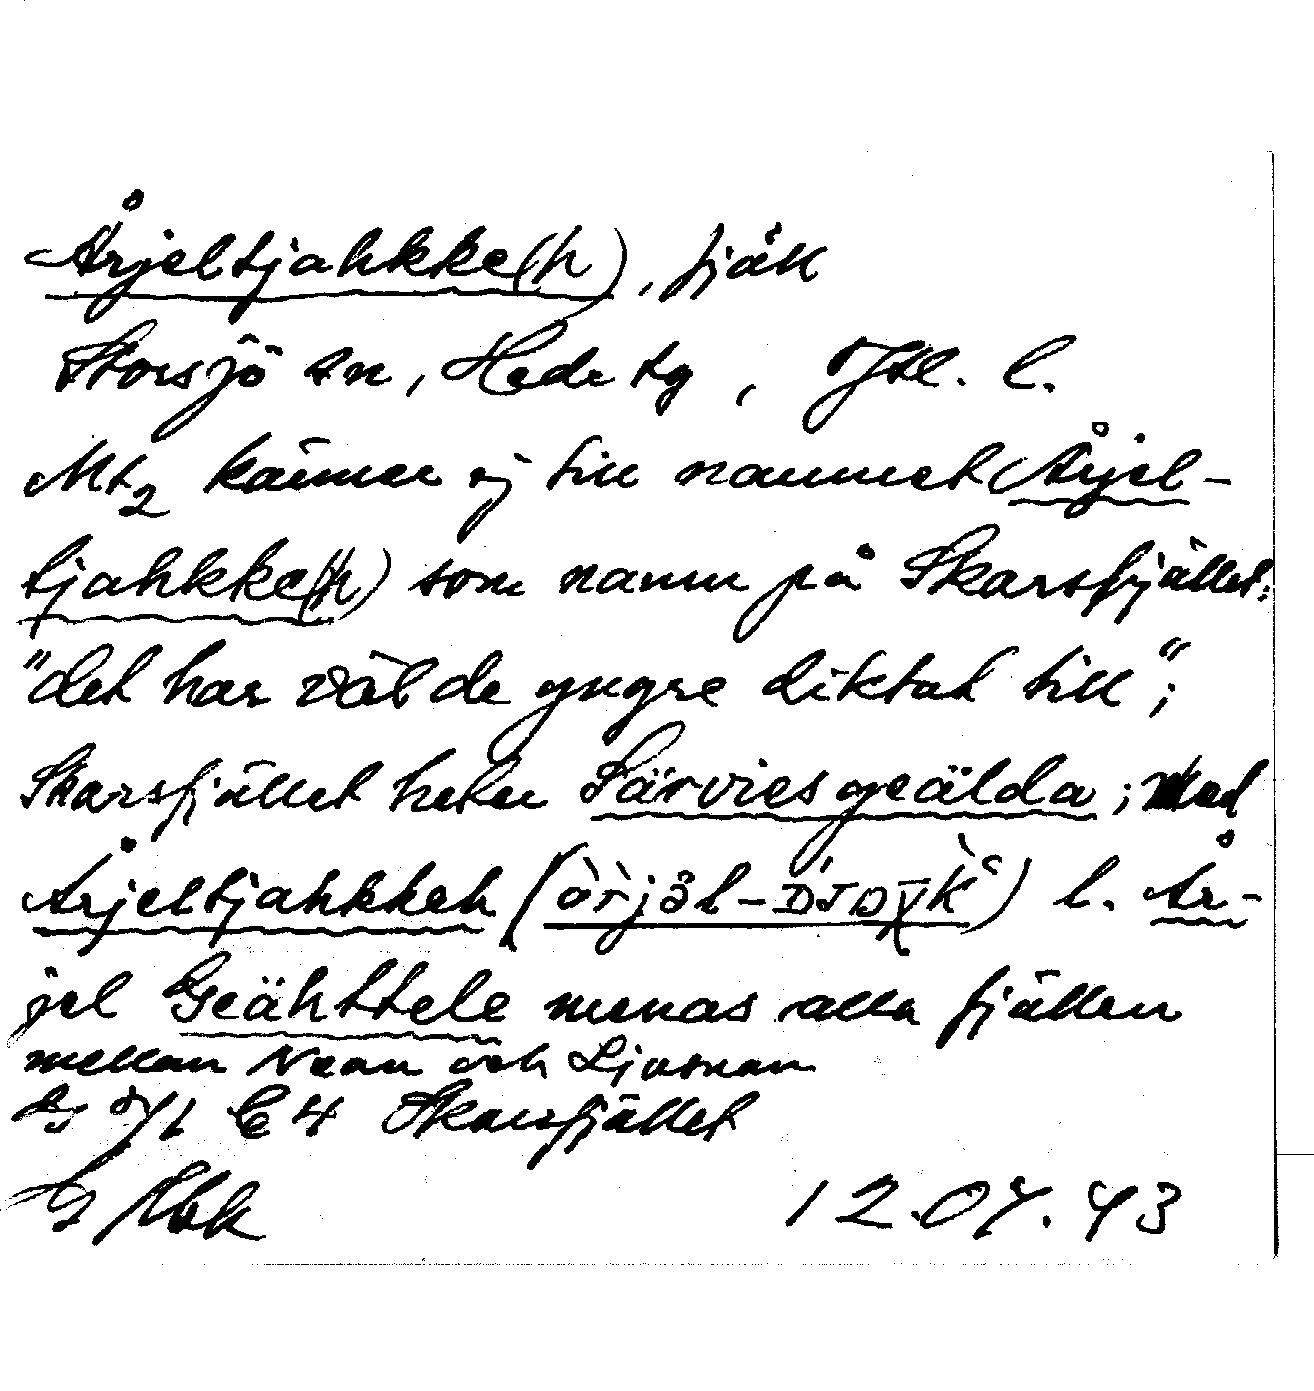 Årjeltjahkke(h), fjäll
Storsjö sn, Hede tg, Jtl. l.
Mt2 känner ej till namnet Årjel-
tjahkke(h) som namn på Skarsfjället:
"det har väl de yngre diktat till";
Skarsfjället heter Särviesgeälda; med
Årjeltjahkkeh ( ) l. År-
jel Geähttele menas alla fjällen
mellan Nean och Ljusnan
C 4 Skarsfjället
12.07.43